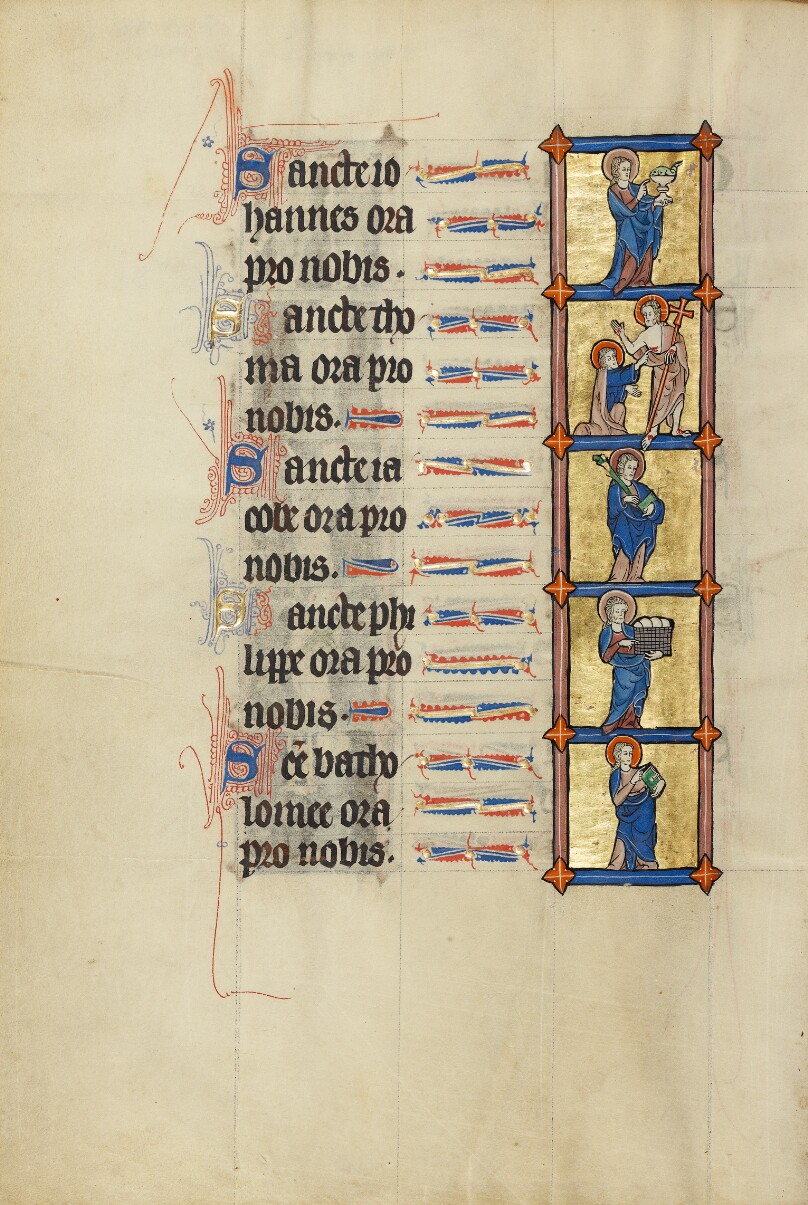 Sancte io
hannes ora
pro nobis.
Sancte tho
ma ora pro
nobis.
Sancte ia
cobe ora pro
nobis.
Sancte phi
lippe ora pro
nobis.
Sc̄e batho
lomee ora
pro nobis.